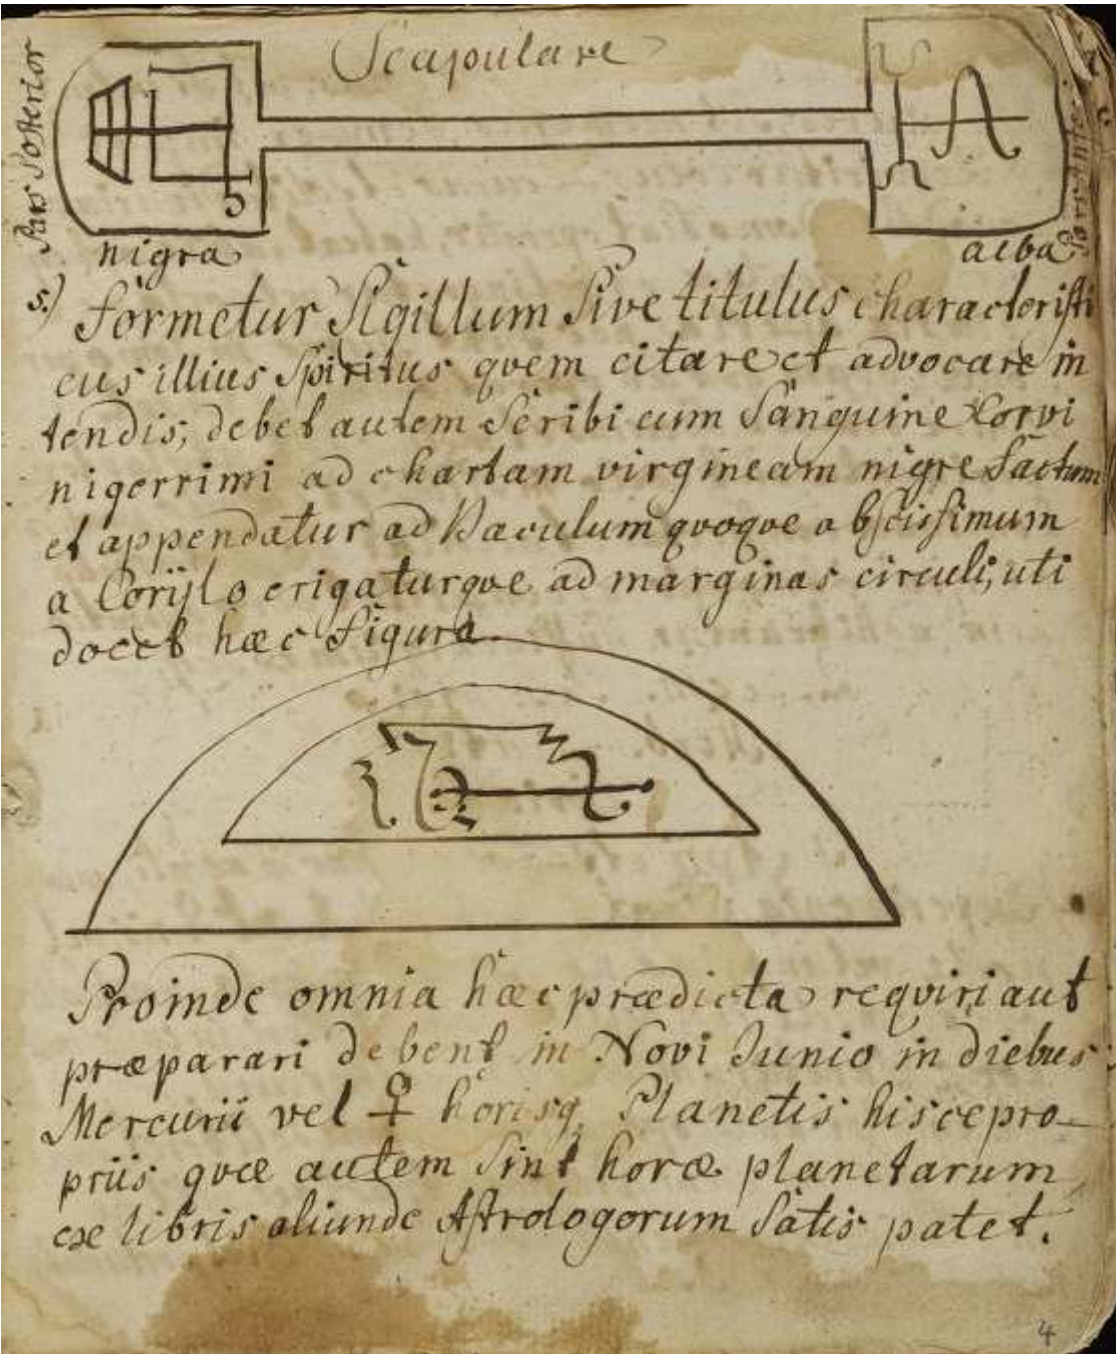 Scapulare
Pars Posterior
nigra
alba
5.) Formetur Sigillum Sive titulus characteristi
cus illius Spiritus qvem citare et advocare in
tendis; debet autem Scribi cum Sanguine Corvi
nigerrimi ad chartam virgineam nigre factum
et appendatur ad Baculum qvoqve abscissimum
a Corylo erigaturqve ad marginas circuli, uti
docet hæc Figura
Proinde omnia hæc prædicta reqviri aut
præparari debent in Novi Junio in diebus
Mercurii vel ♀ horisq, Planetis hisce pro-
priis qvæ autem Sint horæ planetarum
ex libris aliunde Astrologorum Satis patet.
4